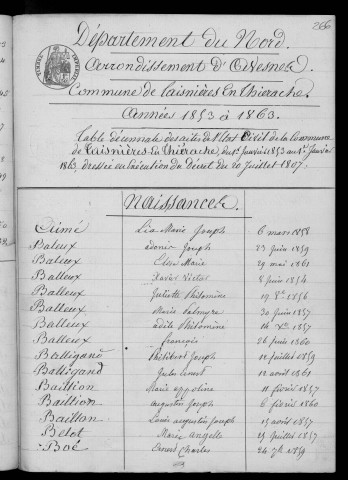 266
Département du Nord.
Arrondissement d'Avesnes
Commune de Taisnières En Thiérache.
Années 1853 à 1863.
Table décennale des actes de l'Etat Civil de la Commune
de Taisnières-En-Thiérache, du 1er Janvier 1853 au 1er Janvier
1863, dressée en Exécution du décret du 20 Juillet 1807.
Naissances.
Aimé Lia Marie Joseph 6 mars 1858
Baleux Adonis Joseph 23 Juin 1859
Baleux Elisa Marie 29 mai 1861
Balleux Xavier Victor 8 Juin 1854
Balleux Juliette Philomène 19 8bre 1856
Balleux Marie Palmyre 30 Juin 1857
Balleux Adèle Philomène 16 1857
Balleux François 26 Juin 1860
Balligand Philibert Joseph 12 Juillet 1859
Balligand Jules 12 avril 1861
Baillion Marie 11 février 1857
Baillion Augustin Joseph 6 février 1860
Baillon Louis Augustin Joseph 15 avril 1857
Belot Marie Angelle 29 Juillet 1857
Boë Ernest Charles 24 7bre 1859